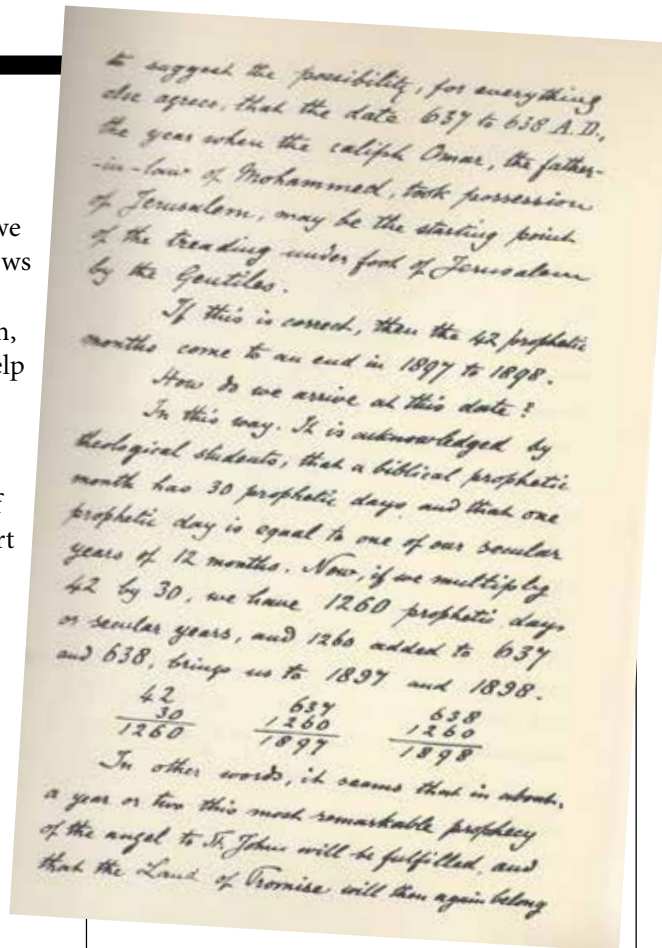 to suggest the possibility, for everything
else agrees, that the date 637 to 638 A.D.,
the year when the caliph Omar, the father-
-in-law of Mohammed, took possession
of Jerusalem, may be the starting point
of the treading under foot of Jerusalem
by the Gentiles.
If this is correct, then the 42 prophetic
months come to an end in 1897 to 1898.
How do we arrive at this date?
In this way. It is acknowledged by
theological students, that a biblical prophetic
month has 30 prophetic days and that one
prophetic day is equal to one of our secular
years of 12 months. Now, if we multiply
42 by 30, we have 1260 prophetic days
or secular years, and 1260 added to 637
and 638, brings us to 1897 and 1898.
42 637 638
30 1260 1260
1260 1897 1898
In other words, it seems that in about,
a year or two this most remarkable prophecy
of the angel to St. John will be fulfilled, and
that the Land of Promise will then again belong
we
ws
n,
elp
f
rt